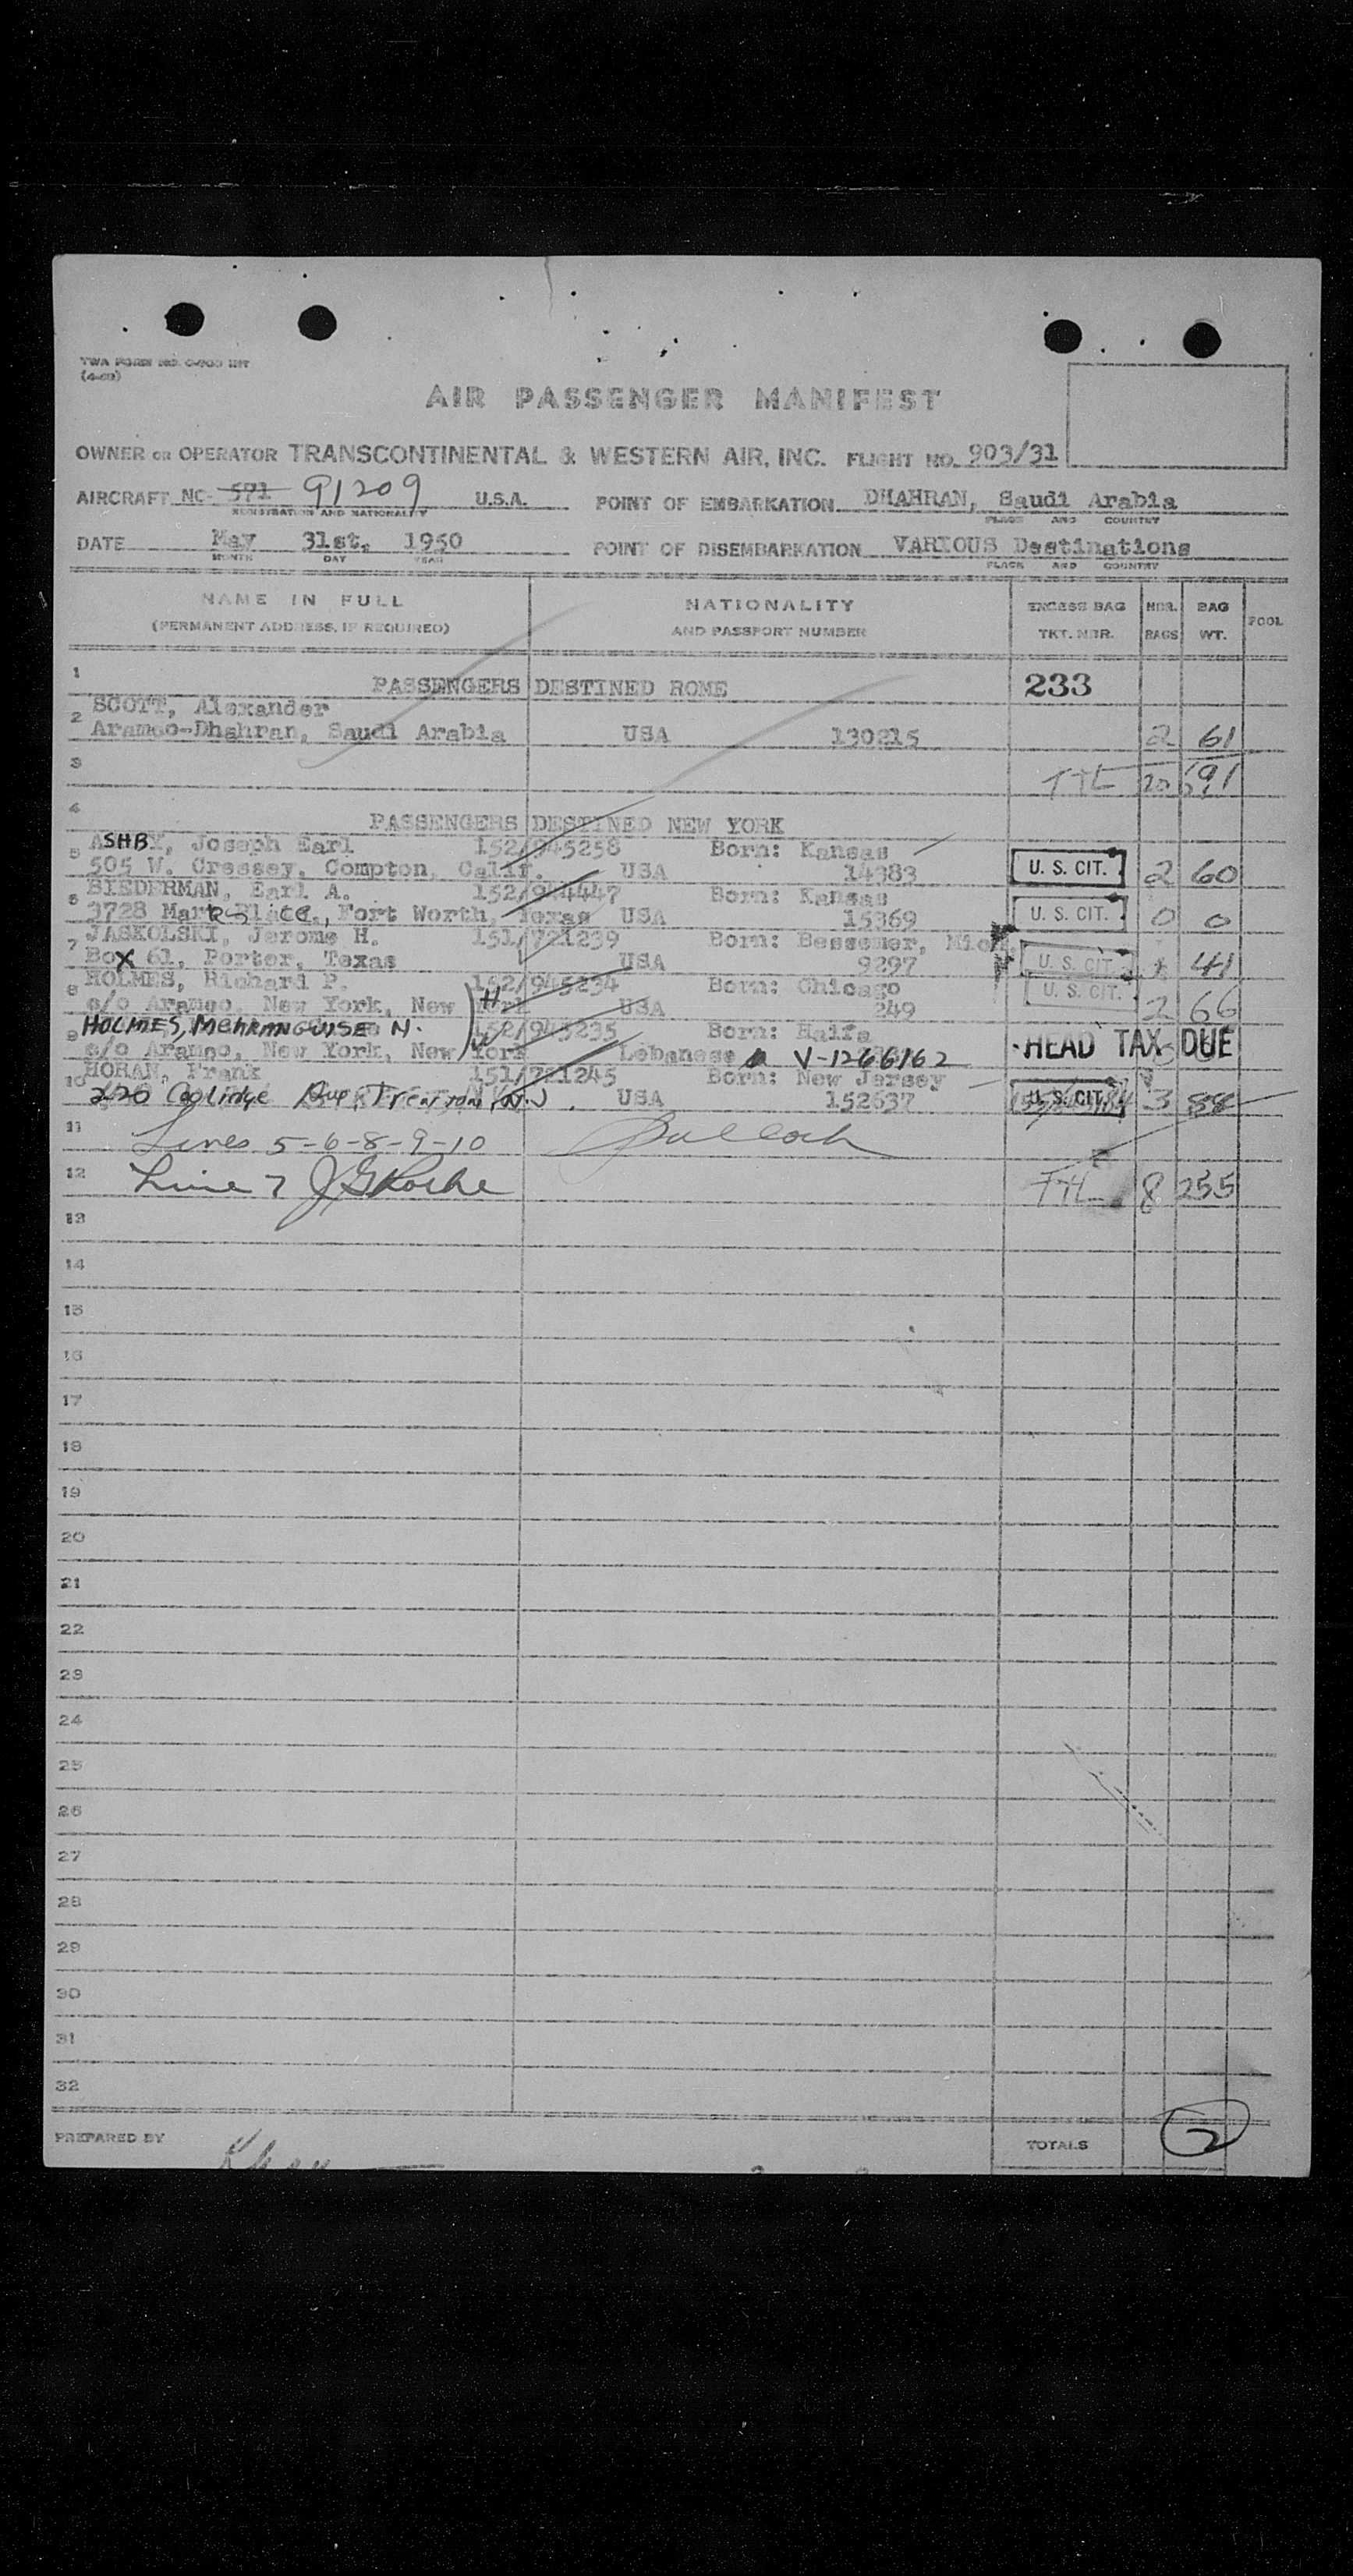 TWA FORM NO. O-200 INT
(4-49)
AIR PASSENGER MANIFEST
OWNER OR OPERATOR TRANSCONTINENTAL & WESTERN AIR, INC. FLIGHT NO. 903/31
AIRCRAFT NC- 571 91209 U.S.A. POINT OF EMBARKATION DHAHRAN, Saudi Arabia
REGISTRATION AND NATIONALITY PLACE AND COUNTRY
DATE May 31st, 1950 POINT OF DISEMBARKATION VARIOUS Destinations
MONTH DAY YEAR PLACE AND COUNTRY
NAME IN FULL NATIONALITY EXCESS BAG NBR. BAG POOL
(PERMANENT ADDRESS, IF REQUIRED) AND PASSPORT NUMBER TKT. NBR. BAGS WT.
1 PASSENGERS DESTINED ROME 233
SCOTT, Alexander
2 Aramco-Dhahran, Saudi Arabia USA 130215 2 61
3 TTL 20 691
4 PASSENGERS DESTINED NEW YORK
5 ASHBY, Joseph Earl 152/945258 Born: Kansas
505 W. Cressey, Compton, Calif. USA 14383 U. S. CIT. 2 60
6 BIEDERMAN, Earl A. 152/944447 Born: Kansas
3728 Mark Place, Fort Worth, Texas USA 15369 U. S. CIT. 0 0
7 JASKOLSKI, Jerome H. 151/721239 Born: Bessemer, Mich.
Box 61, Porter, Texas USA 9297 U. S. CIT. 1 41
8 HOLMES, Richard P. 152/945234 Born: Chicago
c/o Aramco, New York, New York USA 249 U. S. CIT. 2 66
9 HOLMES, MEHRANGUISE N. 152/945235 Born: Haifa
c/o Aramco, New York, New York Lebanese V-1266162 HEAD TAX DUE
HORAN, Frank 151/721245 Born: New Jersey
10 220 Coolidge Ave, Trenton, N.J. USA 152637 U. S. CIT. 3 88
11 Lines 5-6-8-9-10 Bulloch
12 Line 7 TTL 8 255
13
14
15
16
17
18
19
20
21
22
23
24
25
26
27
28
29
30
31
32
PREPARED BY TOTALS 2